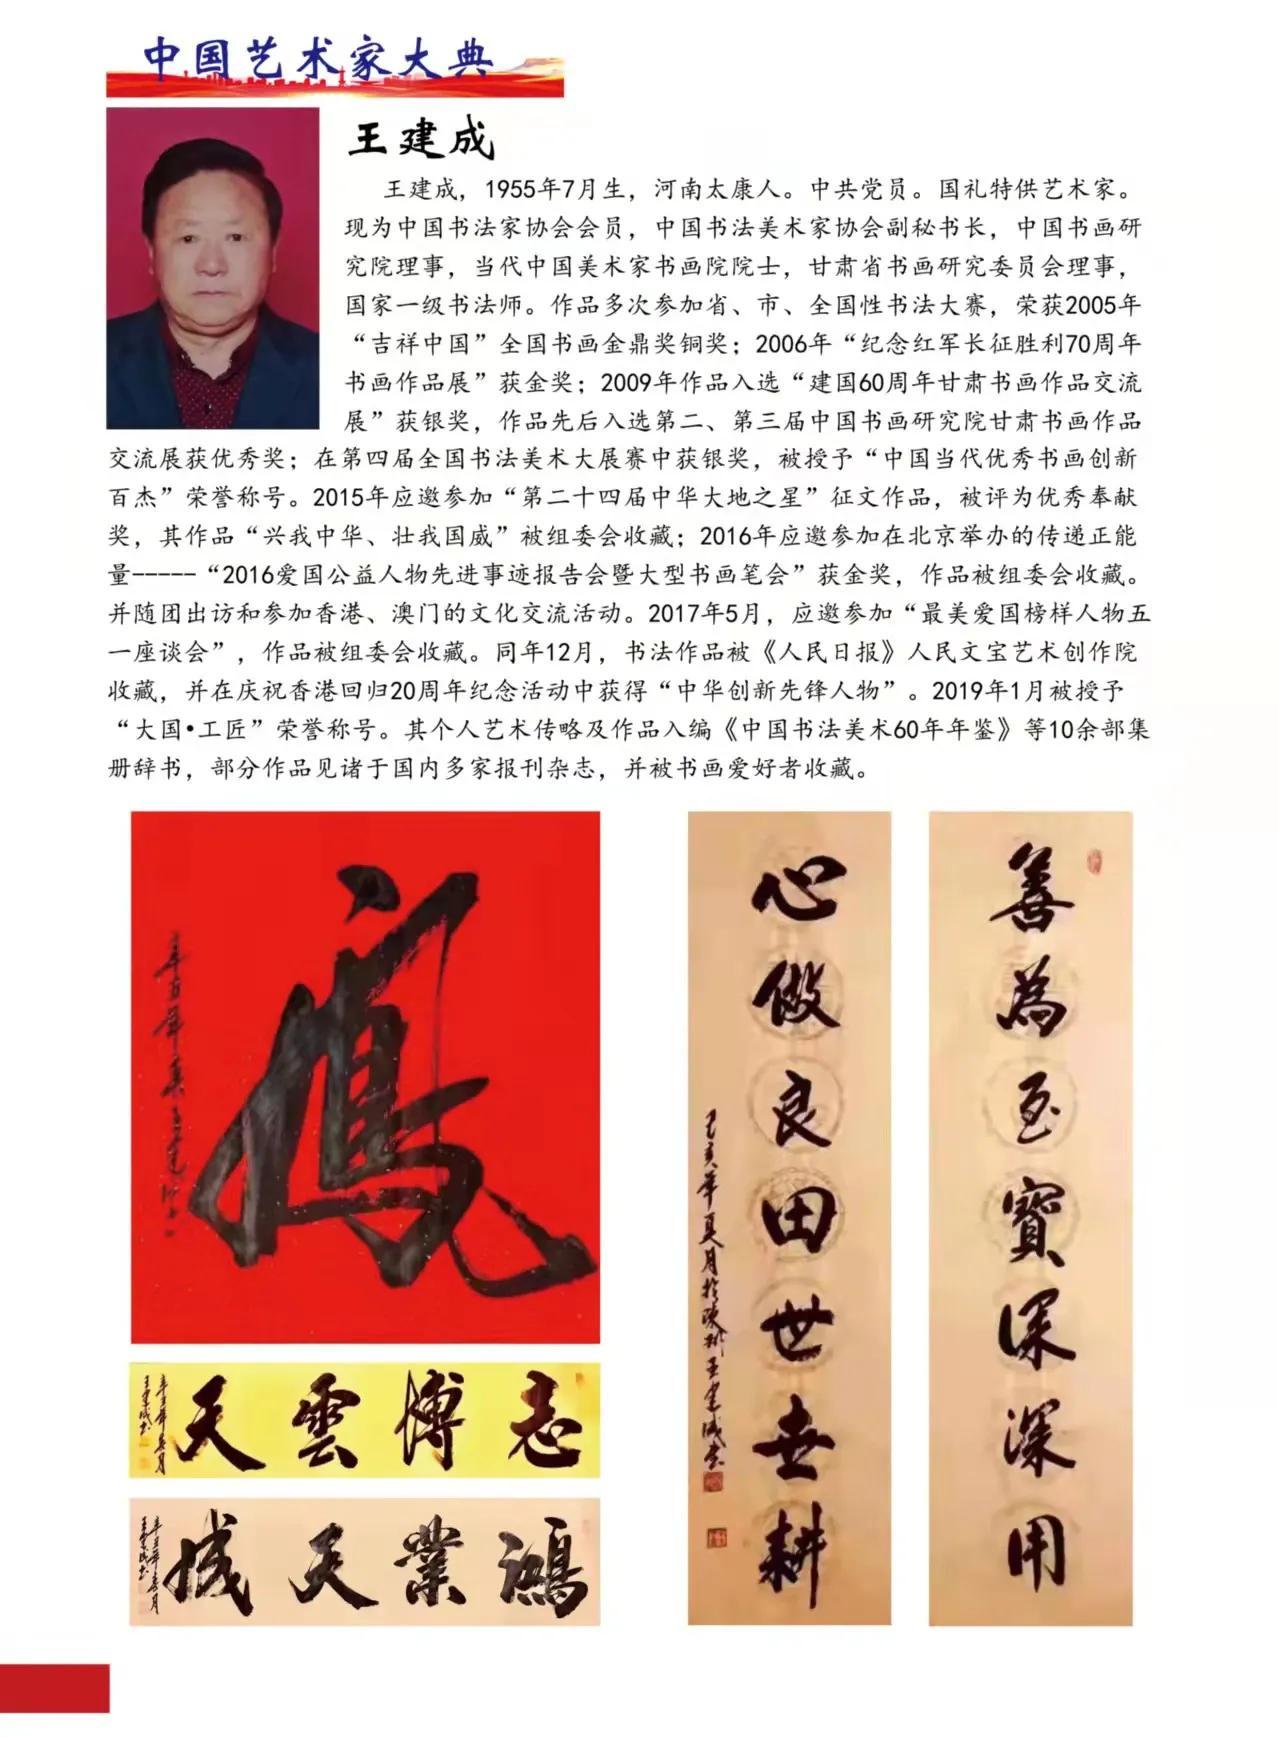 中国艺术家大典
王建成
王建成，1955年7月生，河南太康人。中共党员。国礼特供艺术家。
现为中国书法家协会会员，中国书法美术家协会副秘书长，中国书画研
究院理事，当代中国美术家书画院院士，甘肃省书画研究委员会理事，
国家一级书法师。作品多次参加省、市、全国性书法大赛，荣获2005年
“吉祥中国”全国书画金鼎奖铜奖；2006年“纪念红军长征胜利70周年
书画作品展”获金奖；2009年作品入选“建国60周年甘肃书画作品交流
展”获银奖，作品先后入选第二、第三届中国书画研究院甘肃书画作品
交流展获优秀奖；在第四届全国书法美术大展赛中获银奖，被授予“中国当代优秀书画创新
百杰”荣誉称号。2015年应邀参加“第二十四届中华大地之星”征文作品，被评为优秀奉献
奖，其作品“兴我中华、壮我国威”被组委会收藏；2016年应邀参加在北京举办的传递正能
量-----“2016爱国公益人物先进事迹报告会暨大型书画笔会”获金奖，作品被组委会收藏。
并随团出访和参加香港、澳门的文化交流活动。2017年5月，应邀参加“最美爱国榜样人物五
一座谈会”，作品被组委会收藏。同年12月，书法作品被《人民日报》人民文宝艺术创作院
收藏，并在庆祝香港回归20周年纪念活动中获得“中华创新先锋人物”。2019年1月被授予
“大国•工匠”荣誉称号。其个人艺术传略及作品入编《中国书法美术60年年鉴》等10余部集
册辞书，部分作品见诸于国内多家报刊杂志，并被书画爱好者收藏。
善為至寶深深用
心做良田世世耕
己亥年夏月於 王建成书
志博雲天
王建成书
鴻業天成
王建成书